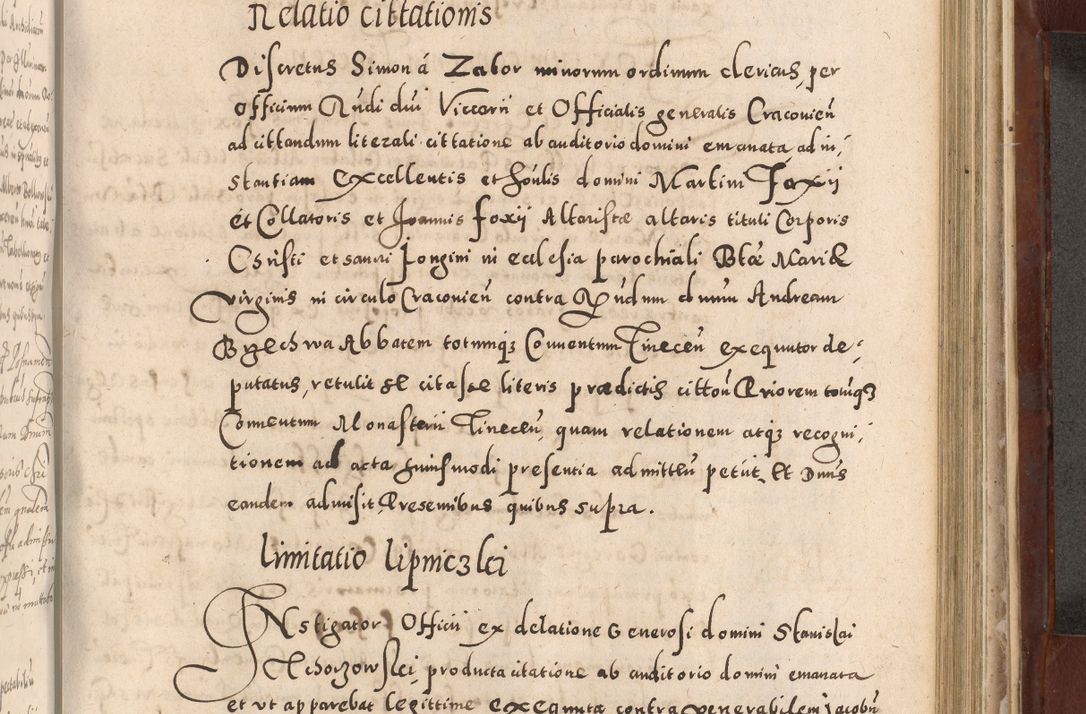 Relatio cittationis
Discretus Simon á Zabor minorum ordinum clericus, per
officium Rndi dni Vicarii et Officialis generalis Cracovien̄
ad cittandum literali cittatione ab auditorio domini emanata, ad in,
stantiam Excellentis et Foulis domini Martini Foxii
ét Collatoris et Joannis foxij Altaristæ altaris tituli Corporis
Christi et sancti Longini in ecclesia parochiali Btæ Mariæ
virginis in circulo Cracovien̄ contra Rndum dnum Andream
Brzechwa Abbatem totumq3 Conventum Tinecen̄ exequutor de-
putatus, retulit se citasse literis prædictis citton̄ Priorem totumq3
Conventum Monasterii Tinecen̄, quam relationem atq3 recogni,
tionem ad acta huiusmodi presentia admitti petiit. Et Dnus
eandem admisit, Presentibus quibus supra.
Limitatio Lipniczki
INstigator Officii ex delatione Generosi domini Stanislai
Chorzowskei producta citatione ab auditorio domini emanata
et ut apparebat legittime exequuta contra venerabilem Jacobū